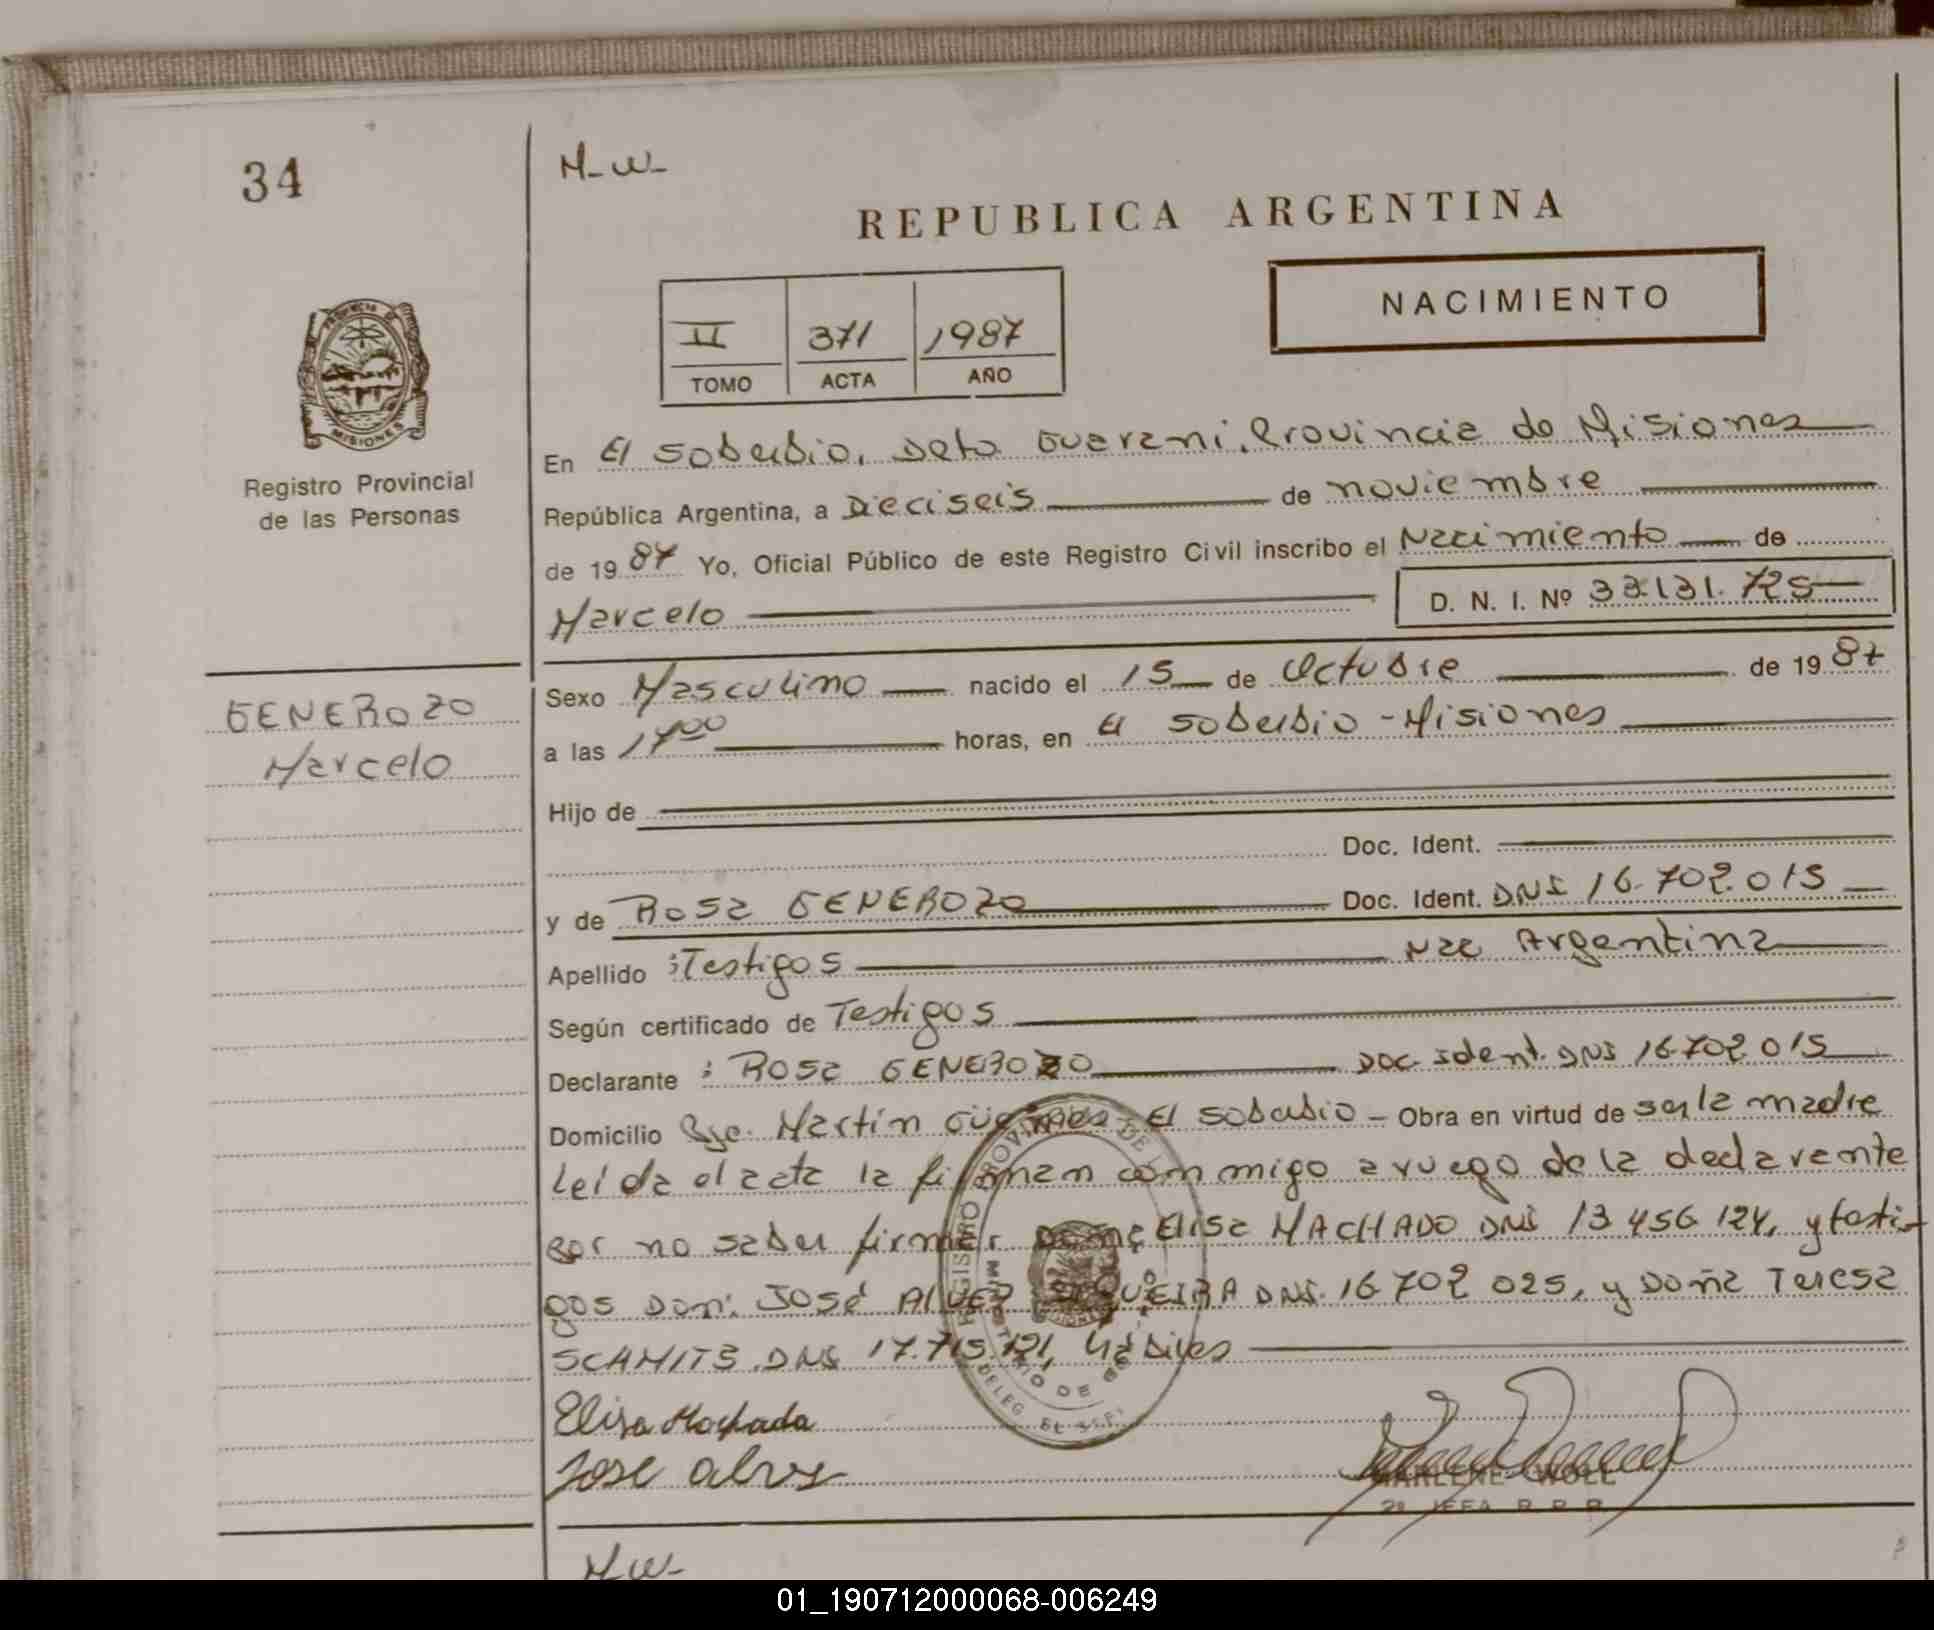 34
M-W-
REPUBLICA ARGENTINA
NACIMIENTO
II 371 1987
TOMO ACTA AÑO
PROVINCIA DE
MISIONES
Registro Provincial
de las Personas
En El Soberbio, Dpto Guarani, Provincia de Misiones
República Argentina, a Dieciseis de noviembre
de 1987 Yo, Oficial Público de este Registro Civil inscribo el Nacimiento de
Marcelo D. N. I. Nº 33.131.725
GENEROZO
Marcelo
Sexo Masculino nacido el 15 de Octubre de 1987
a las 1700 horas, en El Soberbio - Misiones
Hijo de
Doc. Ident.
y de Rosa GENEROZO Doc. Ident. DNI 16.702.015
Apellido :Testigos Nac Argentina
Según certificado de Testigos
Declarante : Rosa GENEROZO Doc Ident. DNI 16.702.015
Domicilio Pje. Martín Güemes El Soberbio - Obra en virtud de ser la madre
Leída el acta la firman conmigo a ruego de la declarante
por no saber firmar Doña Elisa MACHADO DNI 13 456 124, y testi-
gos Don: José ALVEZ SIQUEIRA DNI. 16 702 025, y Doña Teresa
SCHMITS DNI 17.715.121, hábiles
Elisa Machado
Jose alves
MARLENE WOLL
2ª JEFA R. P. P.
M-W-
01_190712000068-006249